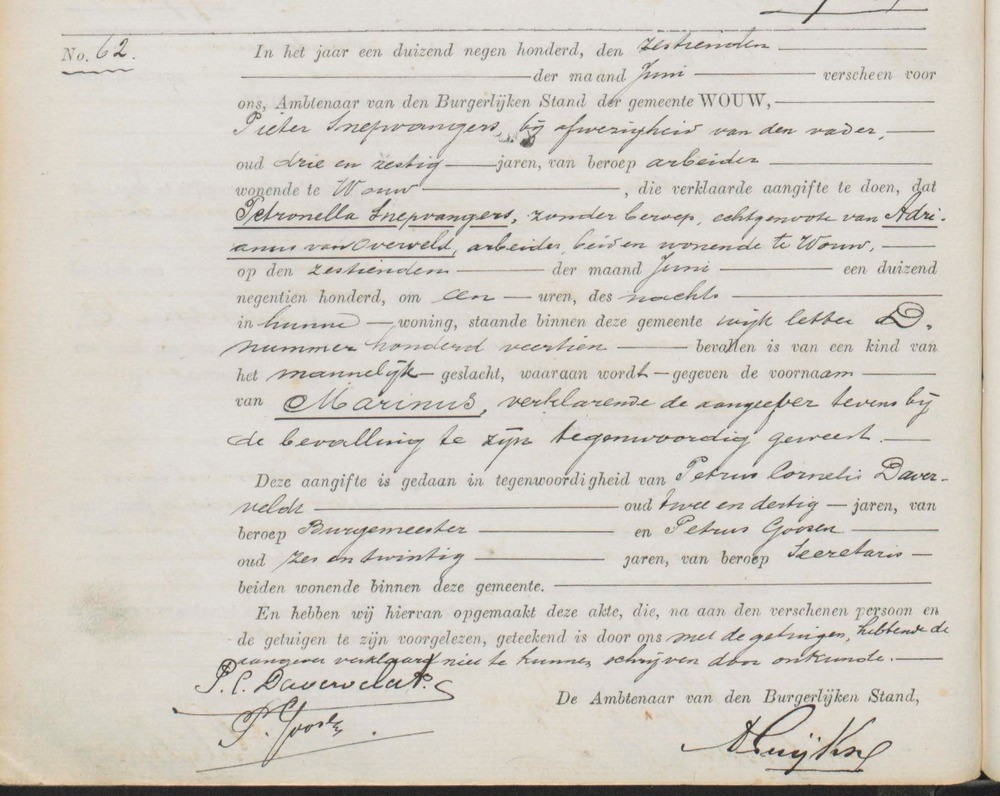 No. 62.
In het jaar een duizend negen honderd, den zestienden
der maand Juni verscheen voor
ons, Ambtenaar van den Burgerlijken Stand der gemeente WOUW,
Pieter Snepvangers, bij afwezigheid van den vader,
oud drie en zestig jaren, van beroep arbeider
wonende te Wouw, die verklaarde aangifte te doen, dat
Petronella Snepvangers, zonder beroep, echtgenoote van Adri-
anus van Overveld, arbeider, beiden wonende te Wouw,
op den zestienden der maand Juni een duizend
negentien honderd, om een uren, des nachts
in hunne woning, staande binnen deze gemeente wijk letter D.
nummer honderd veertien bevallen is van een kind van
het mannelijk geslacht, waaraan wordt gegeven de voornaam
van Marinus, verklarende de aangever tevens bij
de bevalling te zijn tegenwoordig geweest.
Deze aangifte is gedaan in tegenwoordigheid van Petrus Cornelis Daver-
veldt oud twee en dertig jaren, van
beroep Burgemeester en Petrus Goosen
oud zes en twintig jaren, van beroep Secretaris
beiden wonende binnen deze gemeente.
En hebben wij hiervan opgemaakt deze akte, die, na aan den verschenen persoon en
de getuigen te zijn voorgelezen, geteekend is door ons met de getuigen, hebbende de
aangever verklaard niet te kunnen schrijven door onkunde.
P. C. Daverveldt.
De Ambtenaar van den Burgerlijken Stand,
P. Goosen